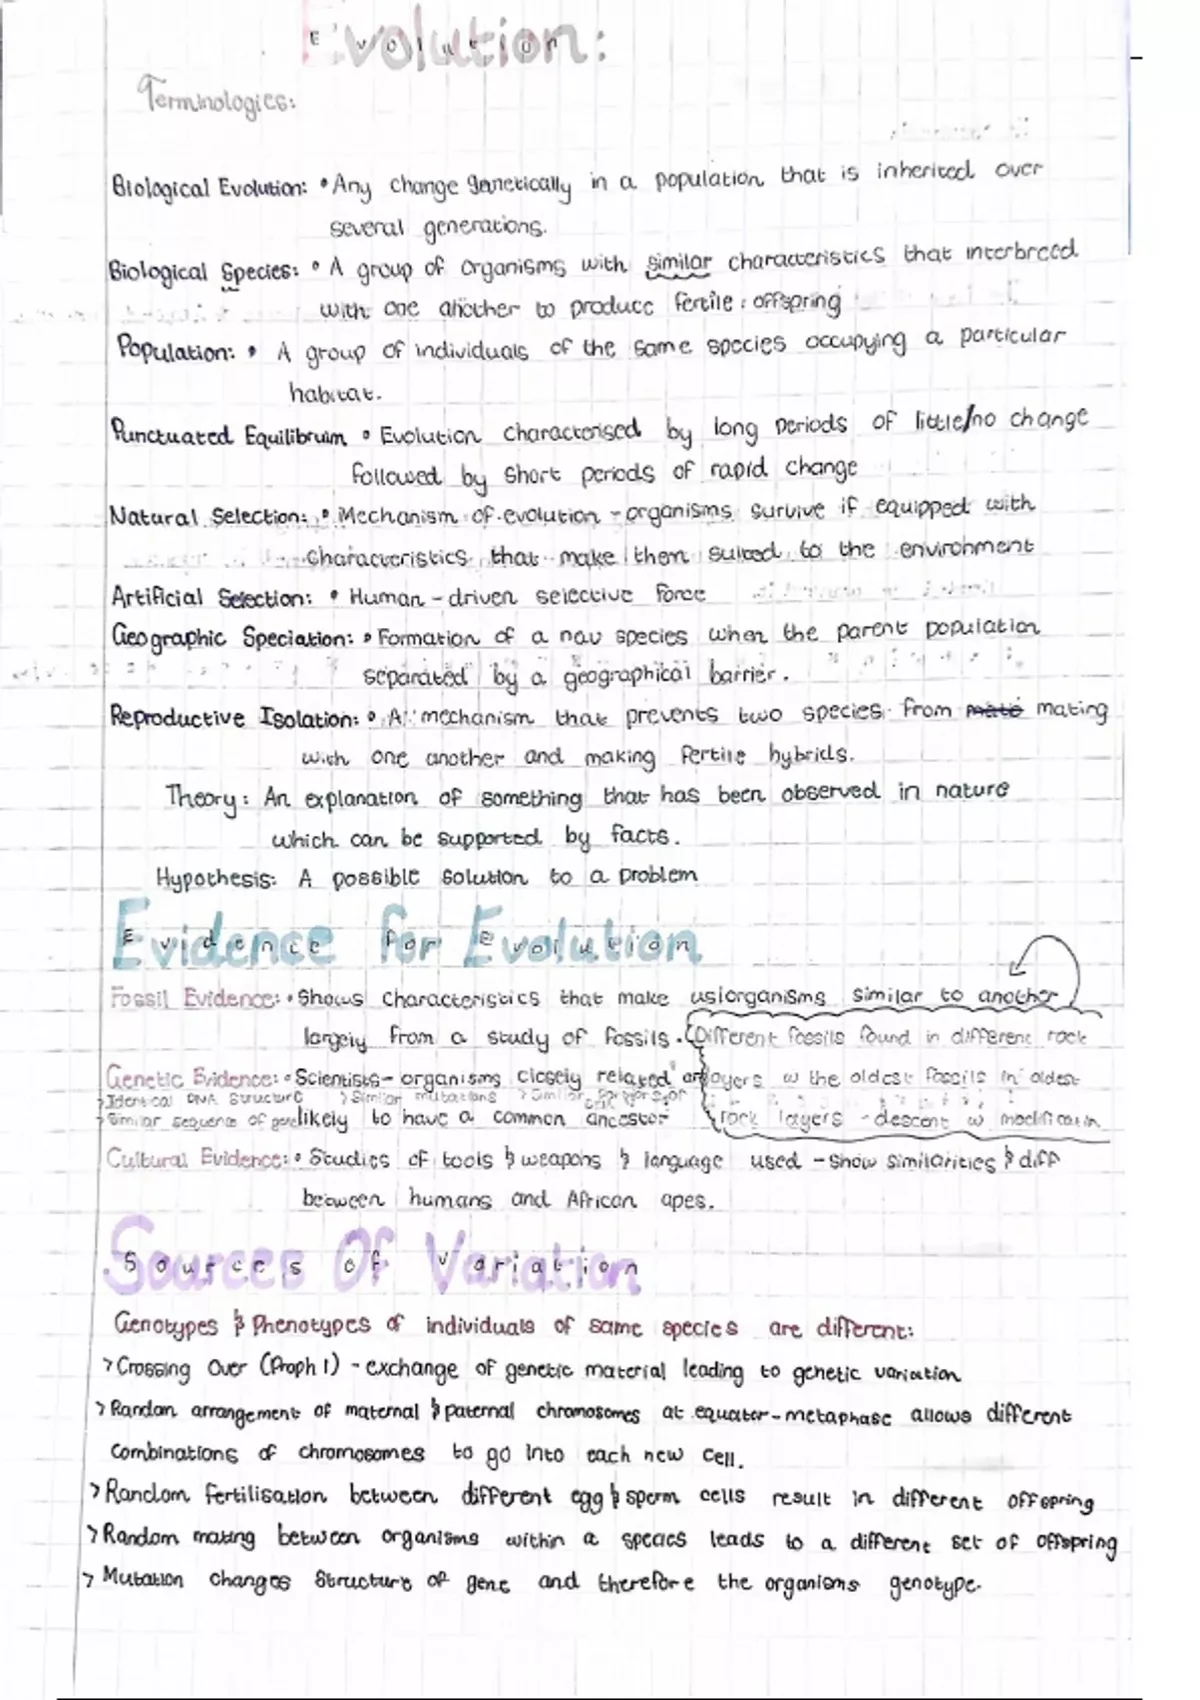 Evolution:
Terminologies:
Biological Evolution: • Any change genetically in a population that is inherited over
several generations.
Biological Species: • A group of organisms with similar characteristics that interbreed
with one another to produce fertile offspring
Population: • A group of individuals of the same species occupying a particular
habitat.
Punctuated Equilibruim • Evolution characterised by long periods of little/no change
followed by short periods of rapid change
Natural Selection: • Mechanism of evolution - organisms survive if equipped with
characteristics that make them suited to the environment
Artificial Selection: • Human-driven selective force
Geographic Speciation: • Formation of a new species when the parent population
separated by a geographical barrier.
Reproductive Isolation: • A mechanism that prevents two species from mate mating
with one another and making fertile hybrids.
Theory: An explanation of something that has been observed in nature
which can be supported by facts.
Hypothesis: A possible solution to a problem
Evidence for Evolution
Fossil Evidence: • Shows characteristics that make us/organisms similar to another
largely from a study of fossils. Different fossils found in different rock
Genetic Evidence: • Scientists - organisms closely related are layers w the oldest fossils in oldest
> Identical DNA structure > Similar mutations > Similar
> Similar sequence of genes likely to have a common ancestor rock layers - descent w modification
Cultural Evidence: • Studies of tools & weapons & language used - show similarities & diff
between humans and African apes.
Sources Of Variation
Genotypes & Phenotypes of individuals of same species are different:
> Crossing Over (Proph 1) - exchange of genetic material leading to genetic variation
> Random arrangement of maternal & paternal chromosomes at equator-metaphase allows different
combinations of chromosomes to go into each new cell.
> Random fertilisation between different egg & sperm cells result in different offspring
> Random mating between organisms within a species leads to a different set of offspring
> Mutation changes structure of gene and therefore the organisms genotype.